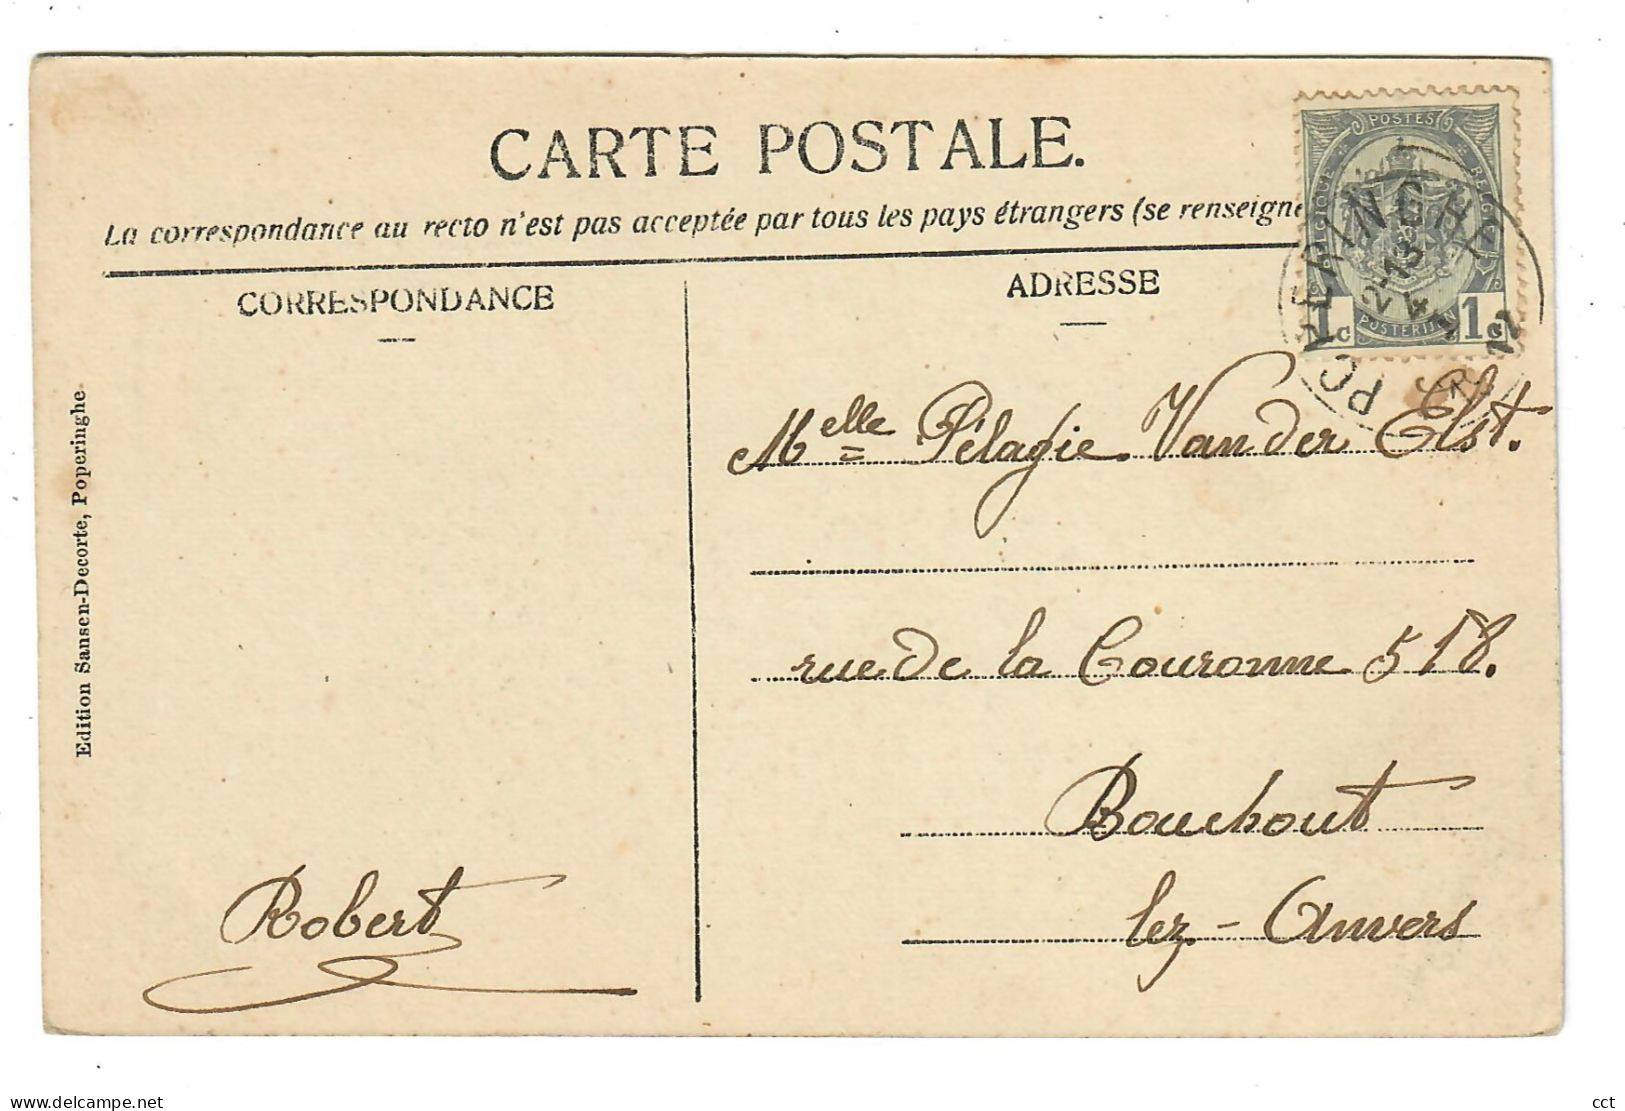 CARTE POSTALE.
La correspondance au recto n'est pas acceptée par tous les pays étrangers (se renseigne
CORRESPONDANCE
ADRESSE
POSTES
BELGIQUE
BELGIË
POSTERIJEN
1c 1c
POPERINGHE
Melle Pélagie Van der Elst.
rue de la Couronne 518.
Bouchout
lez-Anvers
Robert
Edition Sansen-Decorte, Poperinghe
www.delcampe.net
cct